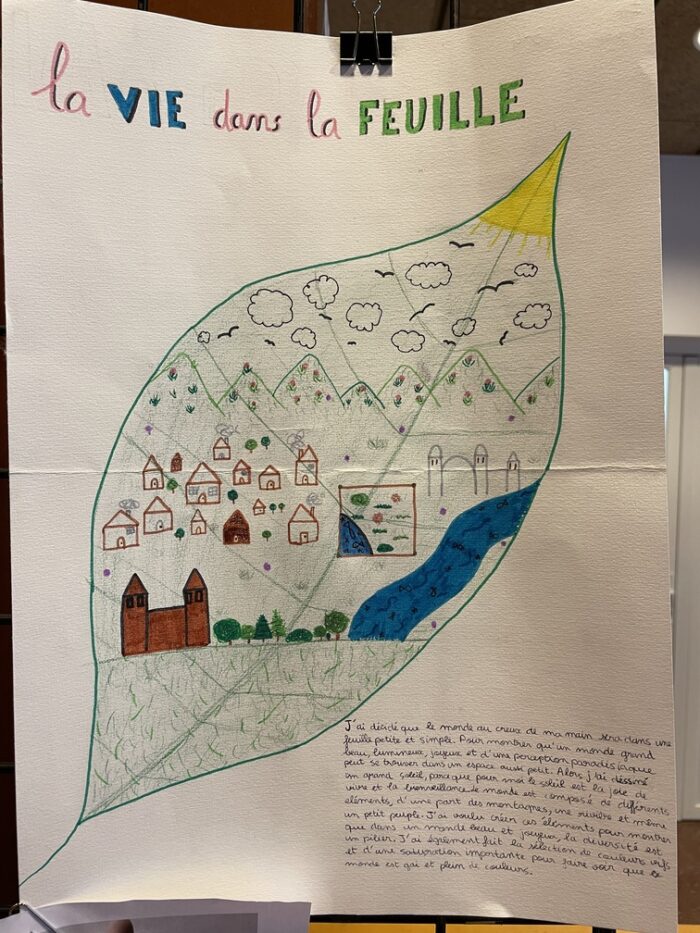 la VIE dans la FEUILLE
J'ai décidé que le monde au creux de ma main sera dans une
feuille petite et simple. Pour montrer qu'un monde grand
beau, lumineux, joyeux et d'une perception paradisiaque
peut se trouver dans un espace aussi petit. Alors j'ai dessiné
un grand soleil, parce que pour moi le soleil est la joie de
vivre et la bienveillance. Le monde est composé de différents
eléments, d'une part des montagnes, une rivière et même
un petit peuple. J'ai voulu créer ces éléments pour montrer
que dans un monde beau et joyeux, la diversité est
un pilier. J'ai également fait la sélection de couleurs vifs
et d'une saturation importante pour faire voir que ce
monde est gai et plein de couleurs.